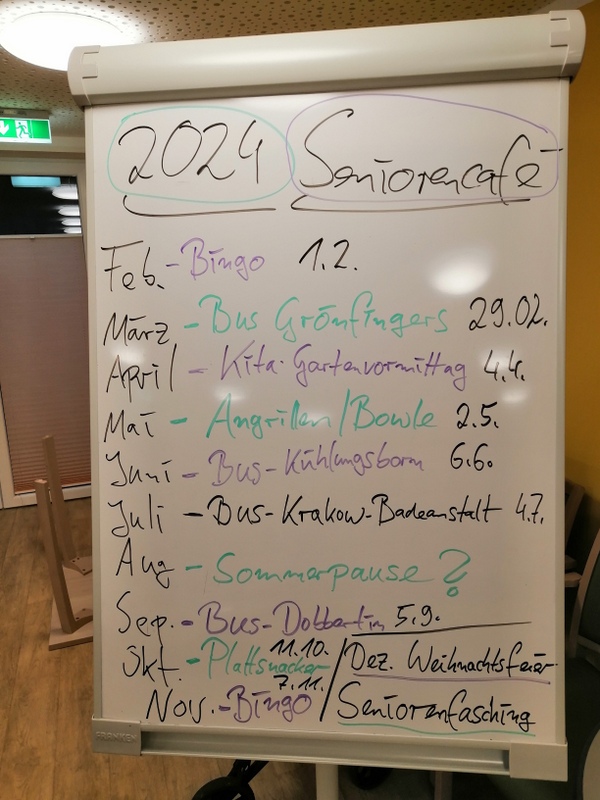 2024 Seniorencafé
Feb. - Bingo 1.2.
März - Bus Grönfingers 29.02.
April - Kita-Gartenvormittag 4.4.
Mai - Angrillen/Bowle 2.5.
Juni - Bus-Kühlungsborn 6.6.
Juli - Bus-Krakow-Badeanstalt 4.7.
Aug - Sommerpause?
Sep. - Bus-Dobbertin 5.9.
Okt. - Plattsnacker 11.10. / Dez. Weihnachtsfeier
Nov. - Bingo 7.11. / Seniorenfasching
FRANKEN